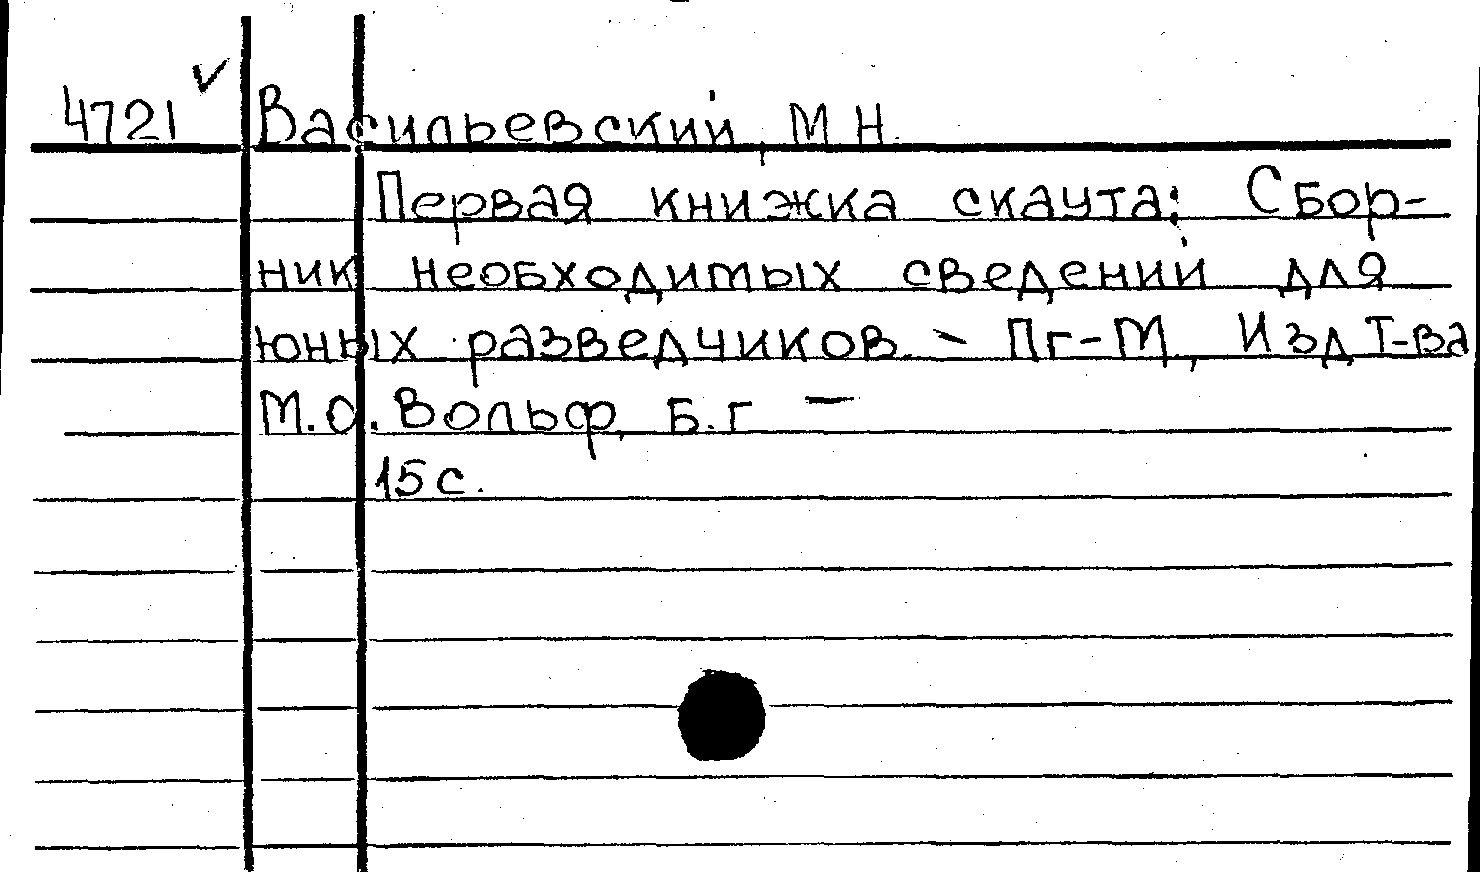 4721 ✓ Васильевский, М Н.
Первая книжка скаута: Сбор-
ник необходимых сведений для
юных разведчиков. - Пг-М, Изд Т-ва
М.О. Вольф, Б.г —
15 с.